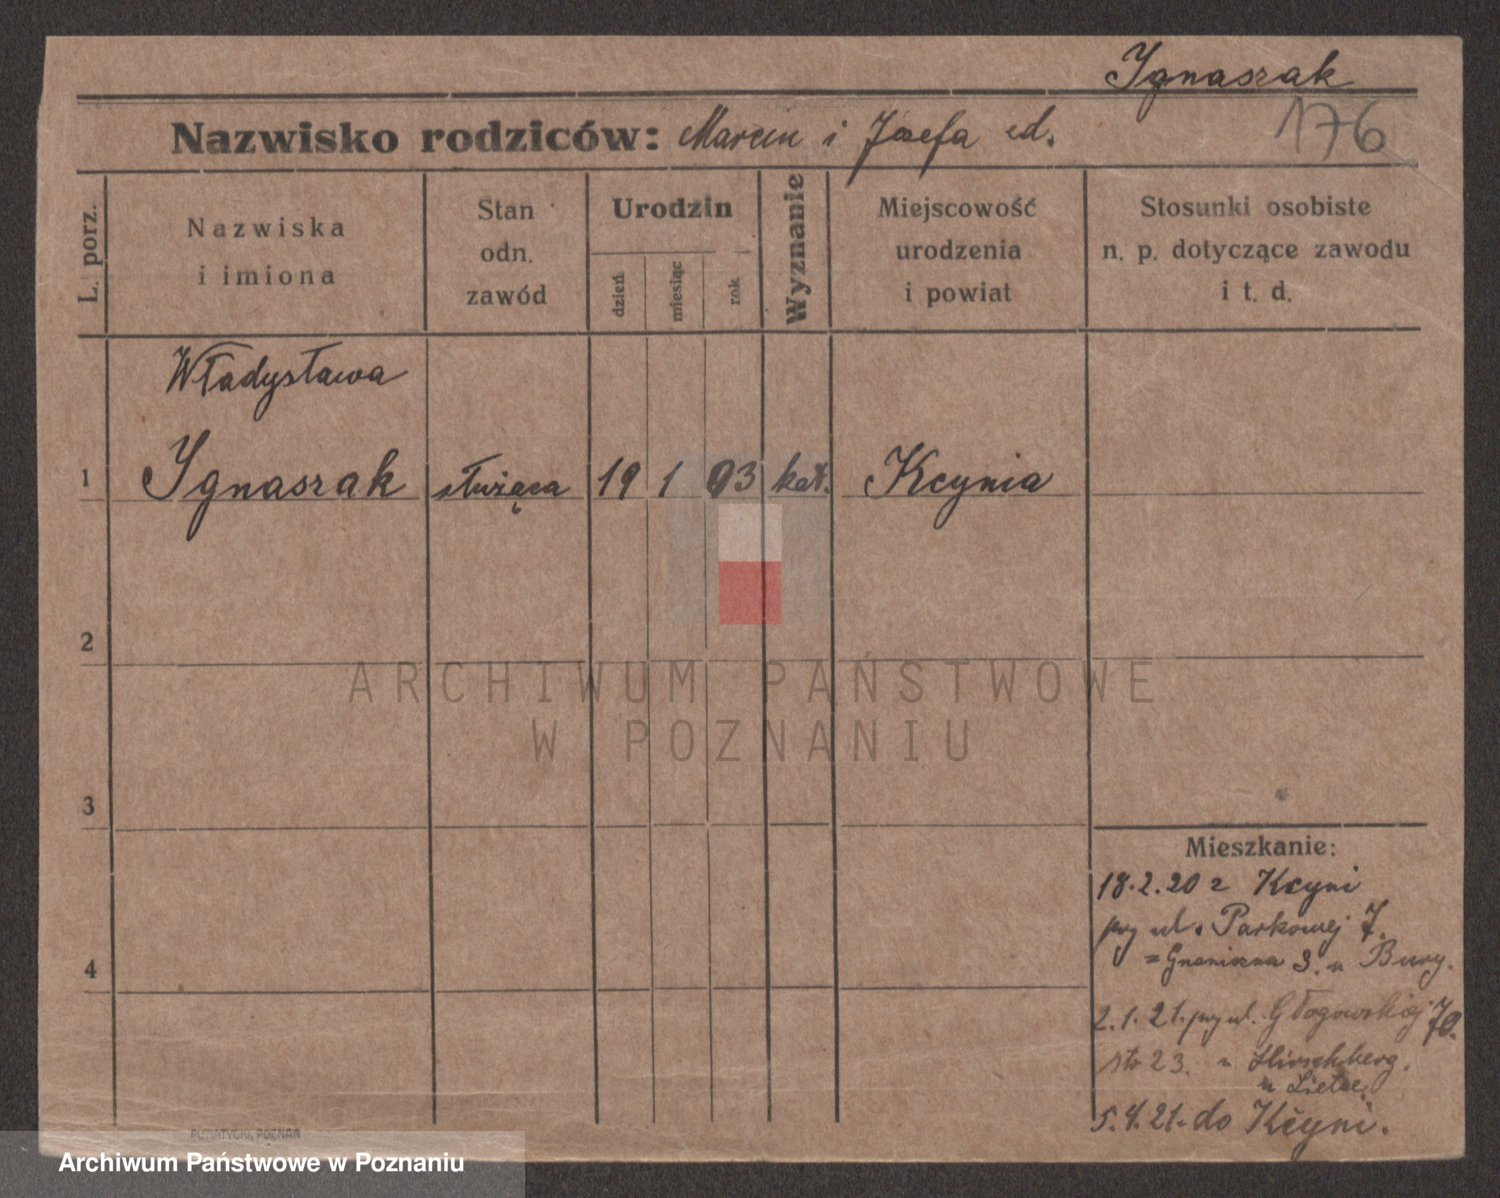 Ignaszak
Nazwisko rodziców: Marcin i Józefa
176
L. porz.
Nazwiska
i imiona
Stan
odn.
zawód
Urodzin
dzień
miesiąc
rok
Wyznanie
Miejscowość
urodzenia
i powiat
Stosunki osobiste
n. p. dotyczące zawodu
i t. d.
Władysława
1 Ignaszak służąca 19 1 03 kat. Kcynia
2
3
4
ARCHIWUM PAŃSTWOWE
W POZNANIU
Mieszkanie:
18.2.20 z Kcyni
przy ul. Parkowej 7.
3. u
2.1.21. przy ul. Głogowskiej 70.
23. u Hirschberg.
u
5.4.21. do Kcyni.
PUTIATYCKI, POZNAŃ
Archiwum Państwowe w Poznaniu